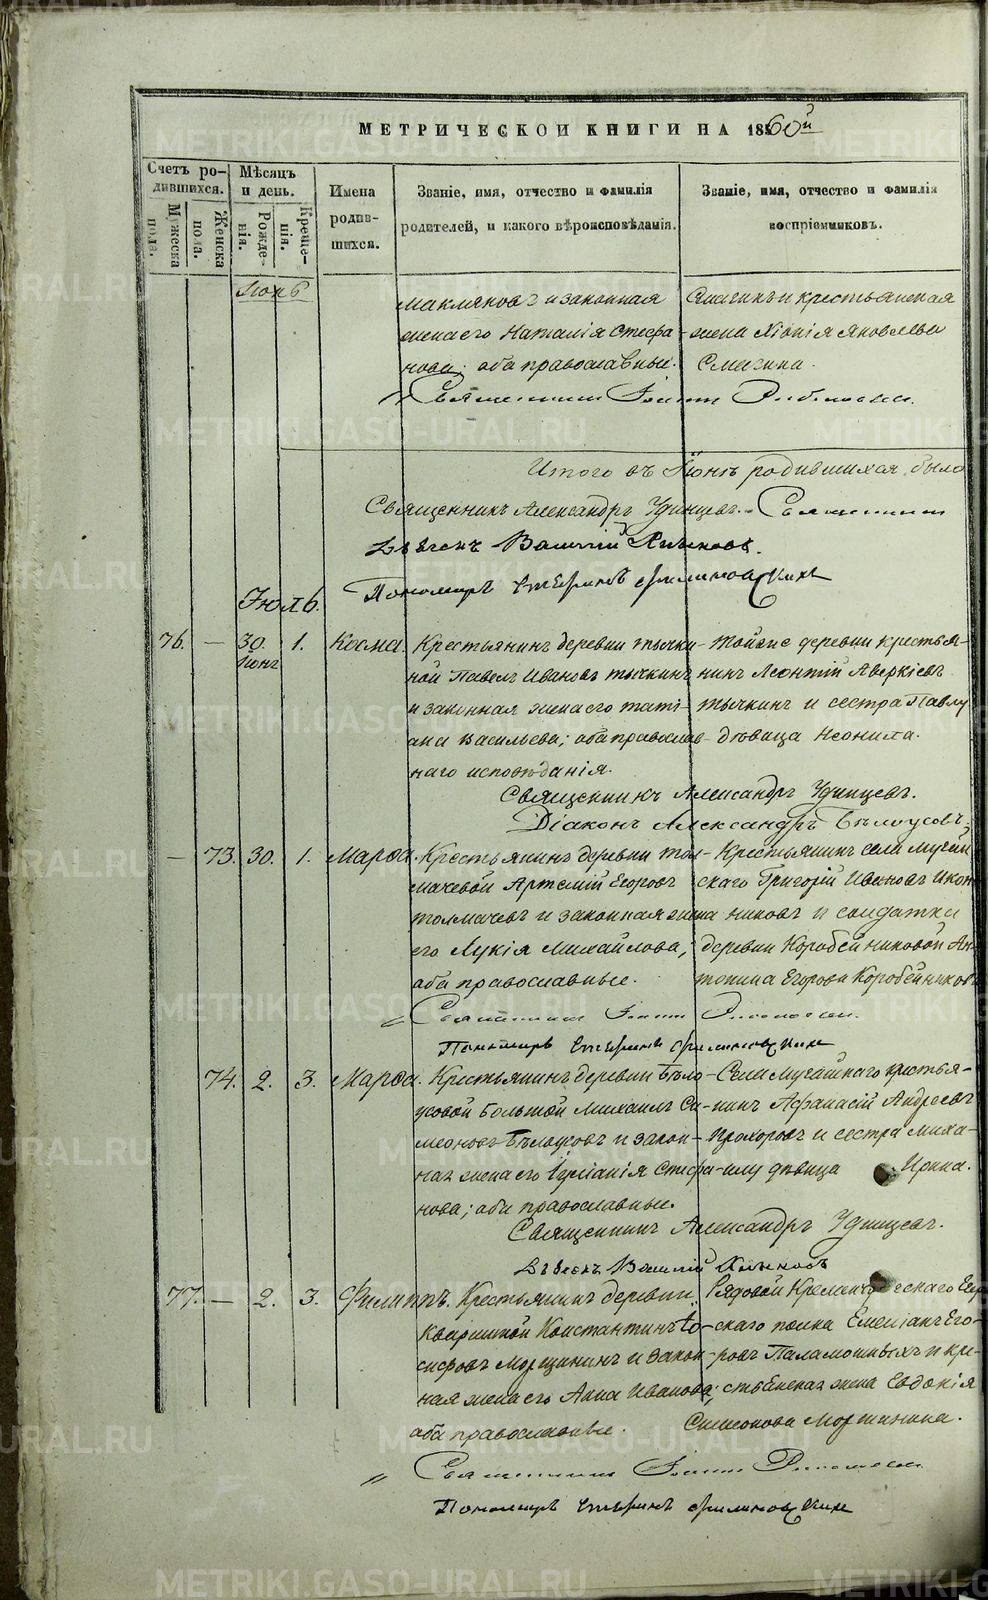 МЕТРИЧЕСКОЙ КНИГИ НА 1860й
Счетъ ро-
дившихся.
Мѣсяцъ
и день.
Имена
родив-
шихся.
Званіе, имя, отчество и фамилія
родителей, и какого вѣроисповѣданія.
Званіе, имя, отчество и фамилія
воспріемниковъ.
Мужеска
пола.
Женска
пола.
Рожде-
нія.
Креще-
нія.
и законная
жена его Наталія Стефа-
нова; оба православные.
и крестьянская
жена Хіонія Яковлева
Священникъ Іоаннъ
Итого въ Іюнѣ родившихся было
Священникъ Александръ Удинцевъ. Священникъ
Василій
Пономарь
Іюль.
76. — 30. Іюня 1. Косма.
Крестьянинъ деревни Тычки-
ной Павелъ Ивановъ Тычкинъ
и законная жена его Таті-
ана Васильева; оба православ-
наго исповѣданія.
Тойже деревни крестья-
нинъ Леонтій Аверкіевъ
Тычкинъ и сестра Павлу
дѣвица Неонила.
Священникъ Александръ Удинцевъ.
Діаконъ Александръ Бѣлоусовъ.
— 73. 30. 1. Марѳа.
Крестьянинъ деревни Тол-
мачевой Артемій Егоровъ
Толмачевъ и законная жена
его Лукія Михайлова;
оба православные.
Крестьянинъ села
Григорій Ивановъ
и солдатка
деревни Коробейниковой Ан-
тонина Егорова Коробейникова
Священникъ Іоаннъ
Пономарь
74. 2. 3. Марѳа.
Крестьянинъ деревни Бѣло-
усовой Большой Михаилъ Си-
меоновъ Бѣлоусовъ и закон-
ная жена его Стефа-
нова; оба православные.
Села крестья-
нинъ Афанасій Андреевъ
Прохоровъ и сестра Миха-
илу дѣвица Ирина.
Священникъ Александръ Удинцевъ.
Василій
77. — 2. 3. Филиппъ.
Крестьянинъ деревни
Квашниной Константинъ Іо-
сифовъ Морщининъ и закон-
ная жена его Анна Иванова;
оба православные.
Рядовой
полка Емеліанъ Его-
ровъ Паламошныхъ и кре-
стьянская жена Евдокія
Симеонова Морщинина.
Священникъ Іоаннъ
Пономарь
METRIKI.GASO-URAL.RU